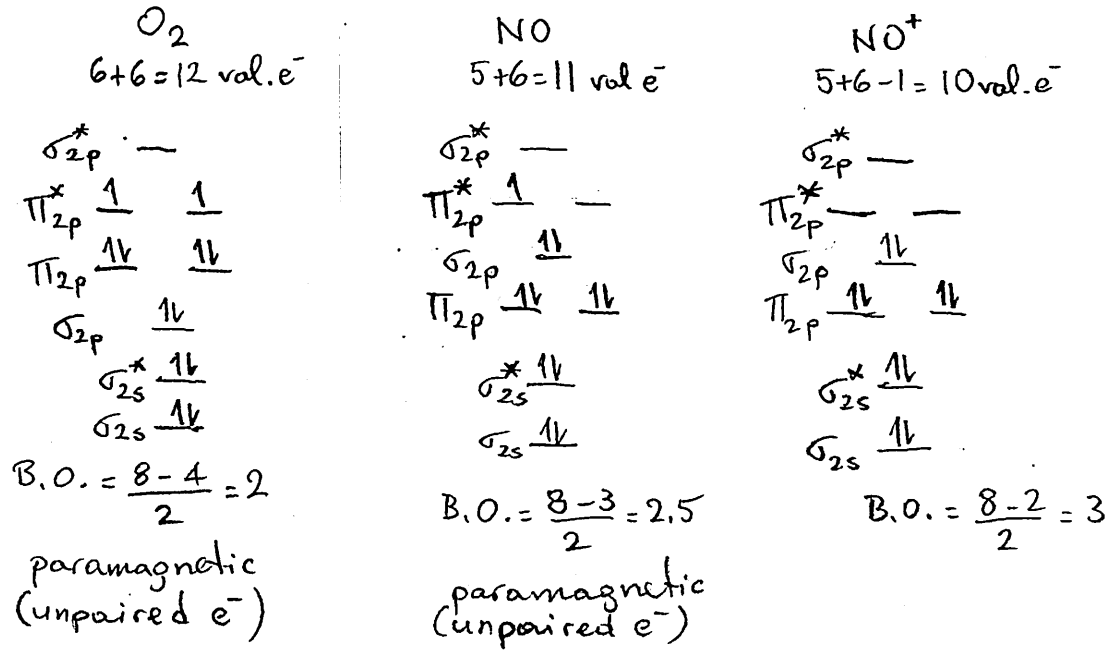 O₂
6+6=12 val.e⁻
σ*₂p —
π*₂p 1 1
π₂p 1l 1l
σ₂p 1l
σ*₂s 1l
σ₂s 1l
B.O. = (8-4)/2 = 2
paramagnetic
(unpaired e⁻)
NO
5+6=11 val e⁻
σ*₂p —
π*₂p 1 —
σ₂p 1l
π₂p 1l 1l
σ*₂s 1l
σ₂s 1l
B.O. = (8-3)/2 = 2.5
paramagnetic
(unpaired e⁻)
NO⁺
5+6-1=10 val.e⁻
σ*₂p —
π*₂p — —
σ₂p 1l
π₂p 1l 1l
σ*₂s 1l
σ₂s 1l
B.O. = (8-2)/2 = 3